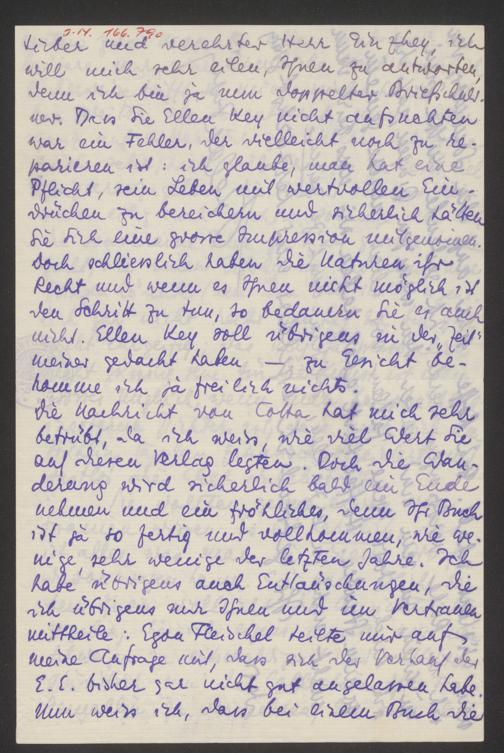 I.N. 166.790
Lieber und verehrter Herr Ginzkey, ich
will mich sehr eilen, Ihnen zu antworten,
denn ich bin ja nun doppelter Briefschuld-
ner. Dass Sie Ellen Key nicht aufsuchten
war ein Fehler, der vielleicht noch zu re-
parieren ist: ich glaube, man hat eine
Pflicht, sein Leben mit wertvollen Ein-
drücken zu bereichern und sicherlich hätten
Sie sich eine grosse Impression mitgenommen.
Doch schliesslich haben die Naturen ihr
Recht und wenn es Ihnen nicht möglich ist
den Schritt zu tun, so bedauern Sie es auch
nicht. Ellen Key soll übrigens in der „Zeit"
meiner gedacht haben — zu Gesicht be-
komme ich ja freilich nichts.
Die Nachricht von Cotta hat mich sehr
betrübt, da ich weiss, wie viel Wert Sie
auf diesen Verlag legten. Doch die Wan-
derung wird sicherlich bald ein Ende
nehmen und ein fröhliches, denn Ihr Buch
ist ja so fertig und vollkommen, wie we-
nige, sehr wenige der letzten Jahre. Ich
habe übrigens auch Enttäuschungen, die
ich übrigens nur Ihnen und im Vertrauen
mittheile: Egon Fleischel teilte mir auf
meine Anfrage mit, dass sich der Verkauf der
E. E. bisher gar nicht gut angelassen habe.
Nun weiss ich, dass bei einem Buch die